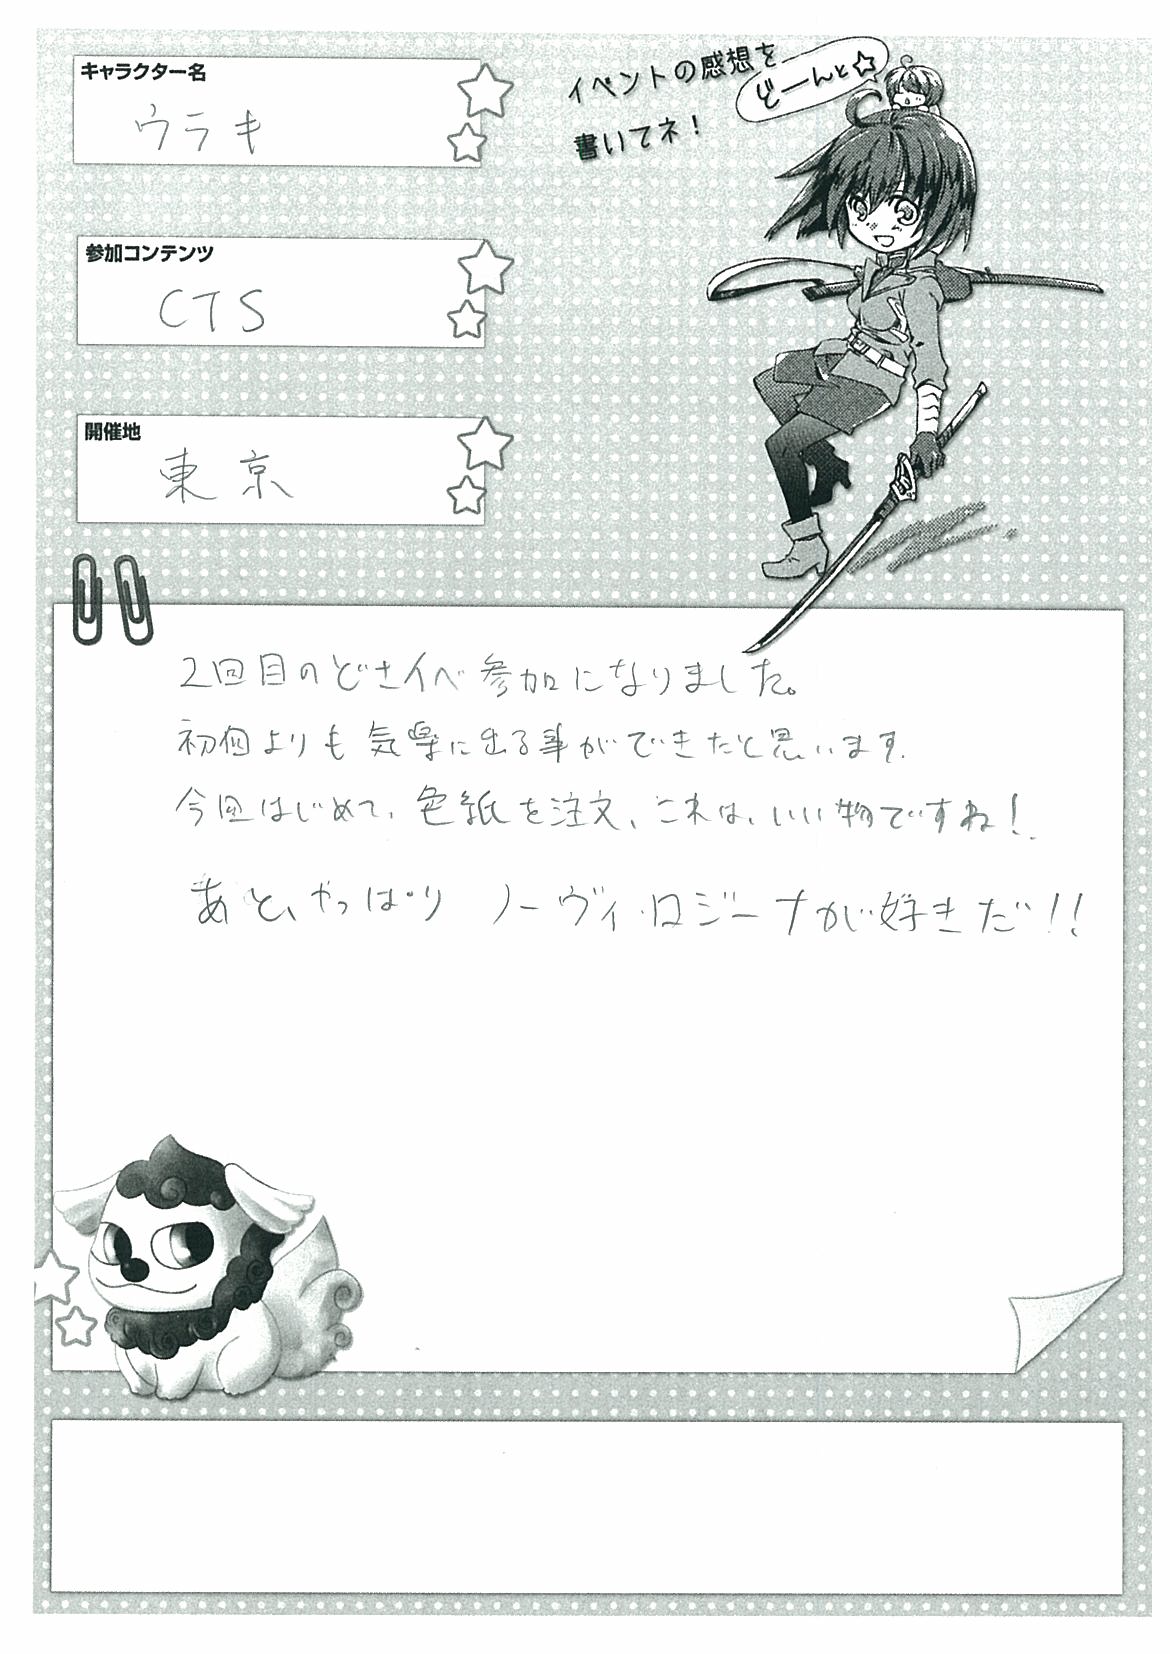 キャラクター名
ウラキ
イベントの感想を
どーんと☆
書いてネ!
参加コンテンツ
CTS
開催地
東京
2回目のどさイベ参加になりました。
初回よりも気楽に出る事ができたと思います.
今回はじめて、色紙を注文、これは、いい物ですね!
あと、やっぱり ノーヴィ・ロジーナが好きだ!!